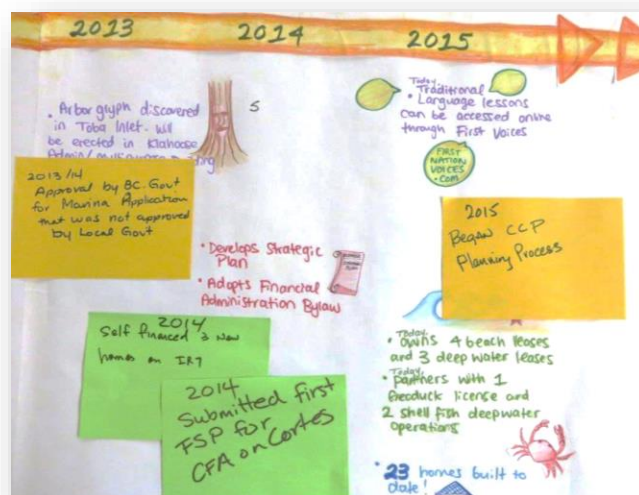 2013
2014
2015
• Arborglyph discovered
in Toba Inlet. Will
be erected in Klahoose
5
2013/14
Approval by BC. Govt
for Marina Application
that was not approved
by Local Govt
• Develops Strategic
Plan
• Adopts Financial
Administration Bylaw
2014
Self financed 3 New
homes on IR7
2014
Submitted first
FSP for
CFA on Cortes
Today
• Traditional
• Language lessons
can be accessed online
through First Voices
FIRST
NATION
VOICES
.COM
2015
Began CCP
Planning Process
Today
• Owns 4 beach leases
and 3 deep water leases
Today
• partners with 1
Geoduck license and
2 shell fish deepwater
operations
• 23 homes built to
date!